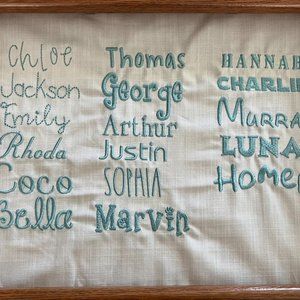 Chloe
Jackson
Emily
Rhoda
Coco
Bella
Thomas
George
Arthur
Justin
SOPHIA
Marvin
HANNAH
CHARLIE
Murra
LUNA
Homer